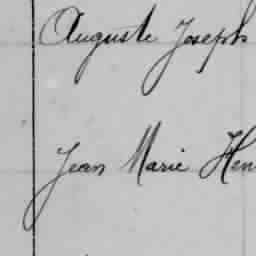 Auguste Joseph
Jean Marie Hen